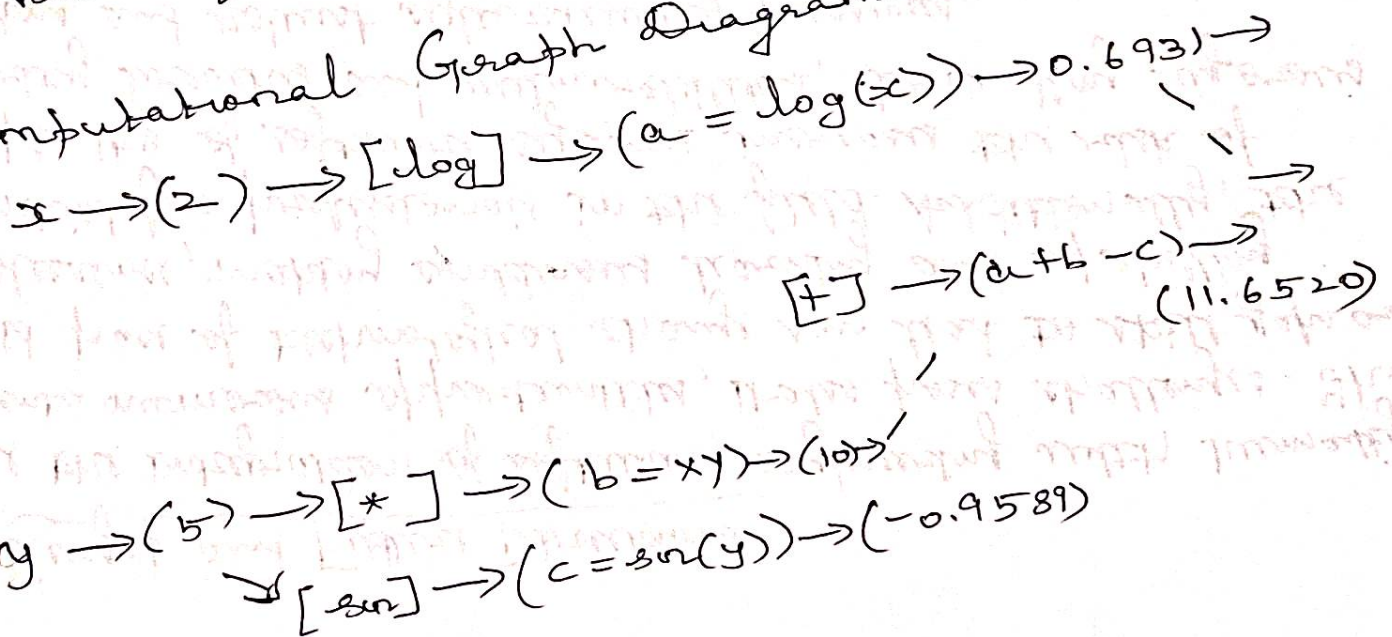 mputational Graph Diagra
x → (2) → [log] → (a = log(x)) → 0.6931 →
[+] → (a+b-c) →
(11.6520)
y → (5) → [*] → (b = xy) → (10) →
[sin] → (c = sin(y)) → (-0.9589)